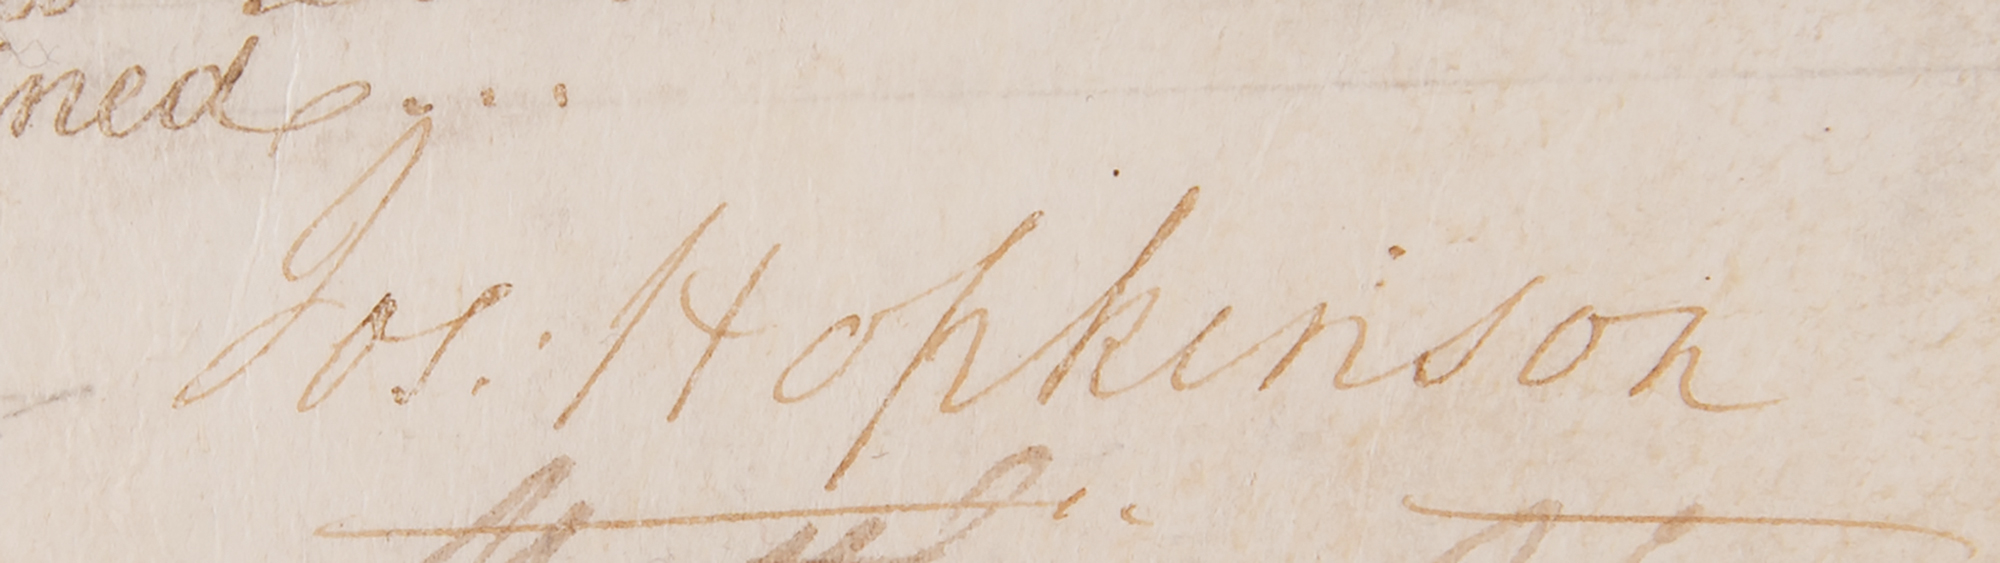 ned...
Jos. Hopkinson